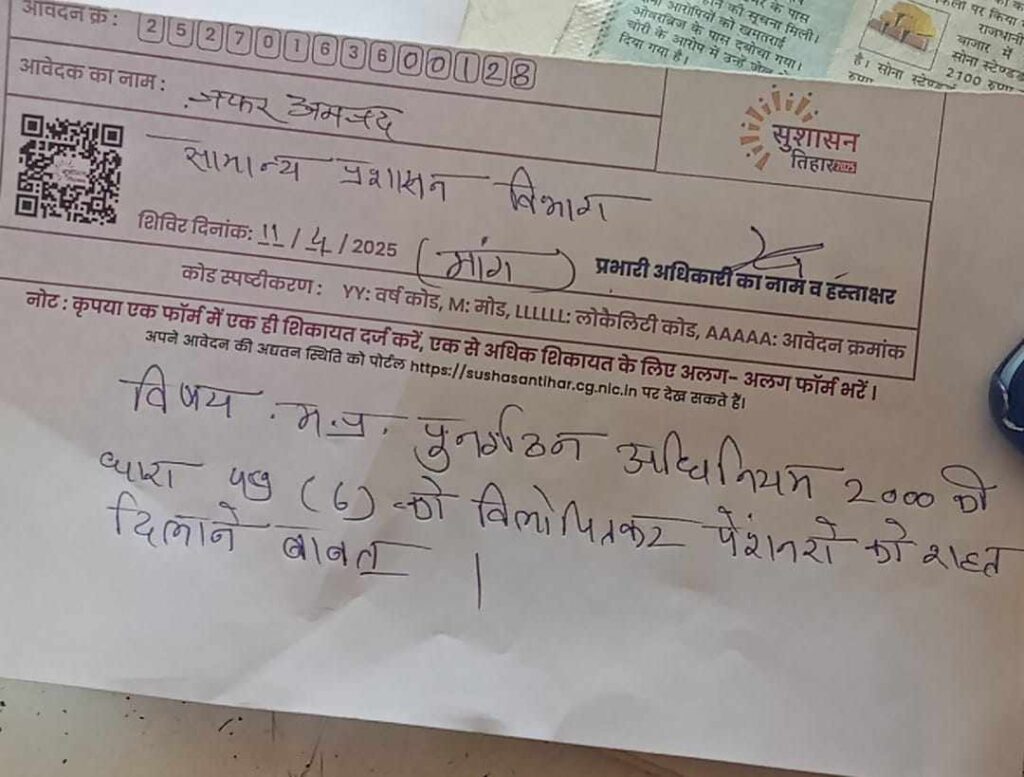 आवेदन क्र :
25270163600128
आवेदक का नाम :
जफर अमजद
सुशासन
तिहार 2025
सामान्य प्रशासन विभाग
शिविर दिनांक: 11 / 4 / 2025 (मांग)
प्रभारी अधिकारी का नाम व हस्ताक्षर
कोड स्पष्टीकरण : YY: वर्ष कोड, M: मोड, LLLLLL: लोकेलिटी कोड, AAAAA: आवेदन क्रमांक
नोट : कृपया एक फॉर्म में एक ही शिकायत दर्ज करें, एक से अधिक शिकायत के लिए अलग- अलग फॉर्म भरें।
अपने आवेदन की अद्यतन स्थिति को पोर्टल https://sushasantihar.cg.nic.in पर देख सकते हैं।
विषय . म.प्र. पुनर्गठन अधिनियम 2000 की
धारा 49 (6) को विलोपितकर पेंशनरो को राहत
दिलाने बाबत ।
के पास
को सूचना मिली।
आरोपियों को खमतराई
ओवरब्रिज के पास दबोचा गया।
चोरी के आरोप में उन्हें जेल
दिया गया है।
पर किया
राजधानी
बाजार में
सोना स्टैण्डर्ड
2100 रुपए
है। सोना स्टैण्डर्ड
रुपए